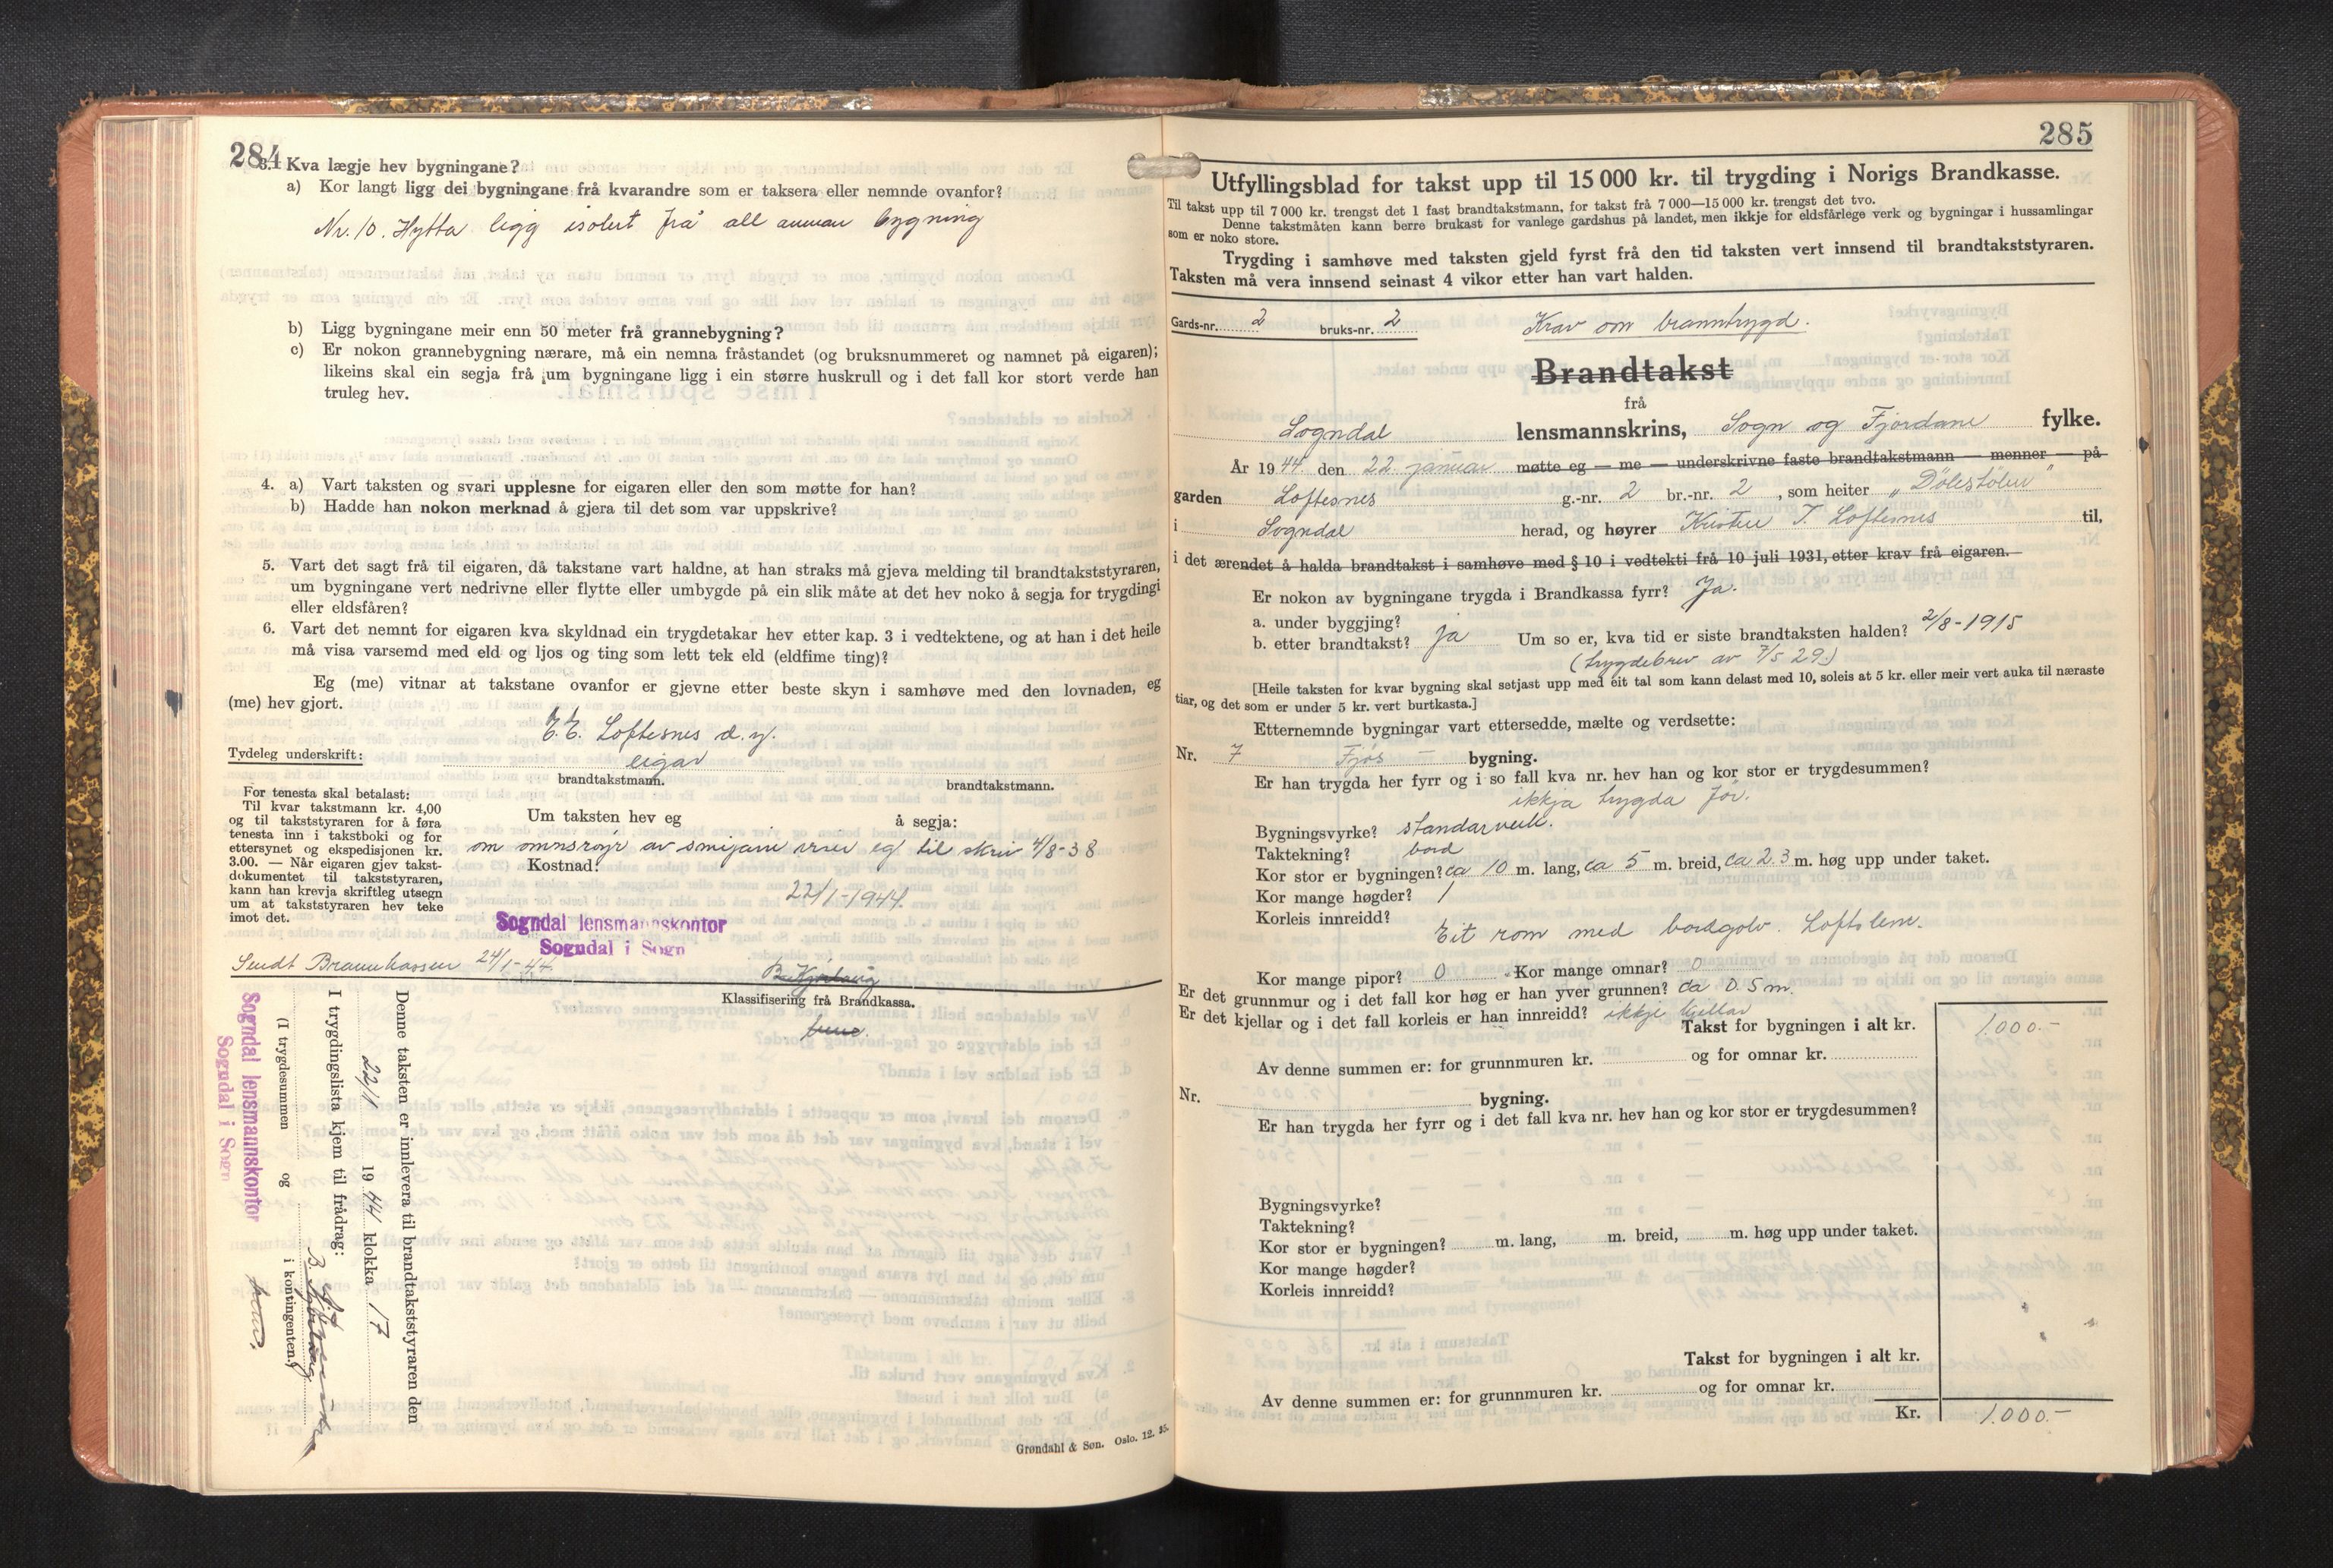 284
3. Kva lægje hev bygningane?
a) Kor langt ligg dei bygningane frå kvarandre som er taksera eller nemnde ovanfor?
Nr. 10. Hytta ligg isolert frå all annan bygning
b) Ligg bygningane meir enn 50 meter frå grannebygning?
c) Er nokon grannebygning nærare, må ein nemna fråstandet (og bruksnummeret og namnet på eigaren);
likeins skal ein segja frå um bygningane ligg i ein større huskrull og i det fall kor stort verde han
truleg hev.
4. a) Vart taksten og svari upplesne for eigaren eller den som møtte for han?
b) Hadde han nokon merknad å gjera til det som var uppskrive?
5. Vart det sagt frå til eigaren, då takstane vart haldne, at han straks må gjeva melding til brandtakststyraren,
um bygningane vert nedrivne eller flytte eller umbygde på ein slik måte at det hev noko å segja for trygdingi
eller eldsfåren?
6. Vart det nemnt for eigaren kva skyldnad ein trygdetakar hev etter kap. 3 i vedtektene, og at han i det heile
må visa varsemd med eld og ljos og ting som lett tek eld (eldfime ting)?
Eg (me) vitnar at takstane ovanfor er gjevne etter beste skyn i samhøve med den lovnaden, eg
(me) hev gjort.
E. E. Loftesnes d. y.
Tydeleg underskrift:
eigar
brandtakstmann. brandtakstmann.
For tenesta skal betalast:
Til kvar takstmann kr. 4,00
og til takststyraren for å føra
tenesta inn i takstboki og for
ettersynet og ekspedisjonen kr.
3.00. — Når eigaren gjev takst-
dokumentet til takststyraren,
kann han krevja skriftleg utsegn
um at takststyraren hev teke
imot det.
Um taksten hev eg å segja:
om omnsrøyr av smijarn viser eg til skriv 4/8-38
Kostnad:
22/1-1944.
Sogndal lensmannskontor
Sogndal i Sogn
Sendt Brannkassen 24/1-44.
Klassifisering frå Brandkassa.
Denne taksten er innlevera til brandtakststyraren den
22/1 1944 klokka 17
I trygdingslista kjem til frådrag:
(I trygdesummen og i kontingenten.)
Sogndal lensmannskontor
Sogndal i Sogn
Grøndahl & Søn. Oslo. 12. 35.
285
Utfyllingsblad for takst upp til 15 000 kr. til trygding i Norigs Brandkasse.
Til takst upp til 7 000 kr. trengst det 1 fast brandtakstmann, for takst frå 7 000—15 000 kr. trengst det tvo.
Denne takstmåten kann berre brukast for vanlege gardshus på landet, men ikkje for eldsfårlege verk og bygningar i hussamlingar
som er noko store.
Trygding i samhøve med taksten gjeld fyrst frå den tid taksten vert innsend til brandtakststyraren.
Taksten må vera innsend seinast 4 vikor etter han vart halden.
Gards-nr. 2 bruks-nr. 2 Krav om branntrygd.
Brandtakst
frå
Sogndal lensmannskrins, Sogn og Fjordane fylke.
År 1944 den 22 januar møtte eg — me — underskrivne faste brandtakstmann — menner — på
garden Loftesnes g.-nr. 2 br.-nr. 2, som heiter „Dølestølen"
i Sogndal herad, og høyrer Kristen T. Loftesnes til,
i det ærendet å halda brandtakst i samhøve med § 10 i vedtekti frå 10 juli 1931, etter krav frå eigaren.
Er nokon av bygningane trygda i Brandkassa fyrr? Ja.
a. under byggjing?
b. etter brandtakst? ja Um so er, kva tid er siste brandtaksten halden? 2/8-1915
(trygdebrev av 7/5 29.)
[Heile taksten for kvar bygning skal setjast upp med eit tal som kann delast med 10, soleis at 5 kr. eller meir vert auka til næraste
tiar, og det som er under 5 kr. vert burtkasta.]
Etternemnde bygningar vart ettersedde, mælte og verdsette:
Nr. 7 Fjøs — bygning.
Er han trygda her fyrr og i so fall kva nr. hev han og kor stor er trygdesummen?
ikkja trygda før.
Bygningsvyrke? standarverk.
Taktekning? bord
Kor stor er bygningen? ca 10 m. lang, ca 5 m. breid, ca 2.3 m. høg upp under taket.
Kor mange høgder? 1
Korleis innreidd?
Eit rom med bordgolv. Loftslem.
Kor mange pipor? 0 Kor mange omnar? 0
Er det grunnmur og i det fall kor høg er han yver grunnen? ca 0.5 m.
Er det kjellar og i det fall korleis er han innreidd? ikkje kjellar
Takst for bygningen i alt kr. 1.000.-
Av denne summen er: for grunnmuren kr. og for omnar kr.
Nr. bygning.
Er han trygda her fyrr og i det fall kva nr. hev han og kor stor er trygdesummen?
Bygningsvyrke?
Taktekning?
Kor stor er bygningen? m. lang, m. breid, m. høg upp under taket.
Kor mange høgder?
Korleis innreidd?
Takst for bygningen i alt kr.
Av denne summen er: for grunnmuren kr. og for omnar kr.
Kr. 1.000.-